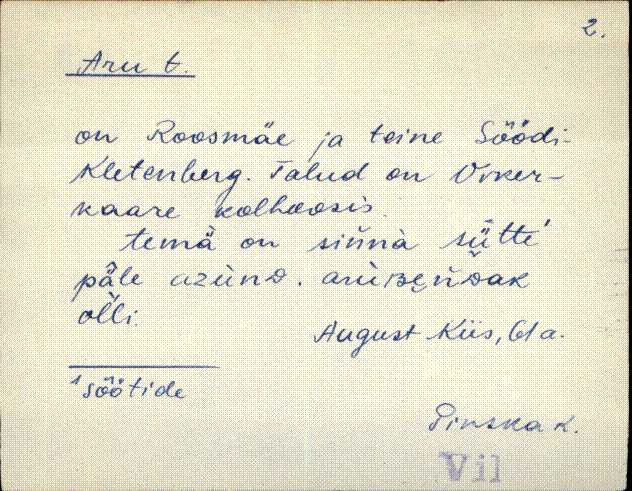 2.
Aru t.
on Roosmäe ja teine Söödi-
Kletenberg. Talud on Viker-
kaare kolhoosis.
temä on sinnà sütte¹
päle azünD. arüBeńDak
olli.
August Kiis, 61 a.
¹ söötide
Pinska k.
Vil